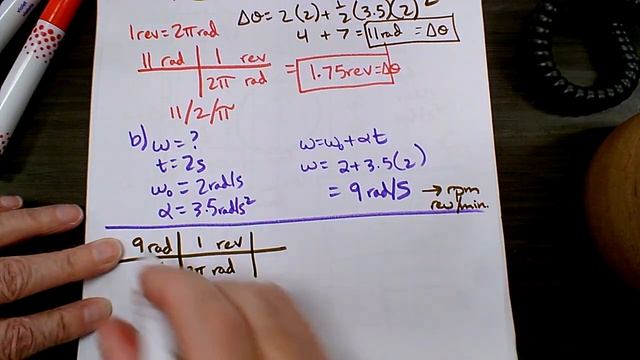 Δθ = 2(2) + ½(3.5)(2)²
1 rev = 2π rad
4 + 7 = 11 rad = Δθ
11 rad | 1 rev
2π rad
= 1.75 rev = Δθ
11/2/π
b) ω = ?
t = 2s
ω₀ = 2 rad/s
α = 3.5 rad/s²
ω = ω₀ + αt
ω = 2 + 3.5(2)
= 9 rad/s → rpm
rev/min.
9 rad | 1 rev |
2π rad